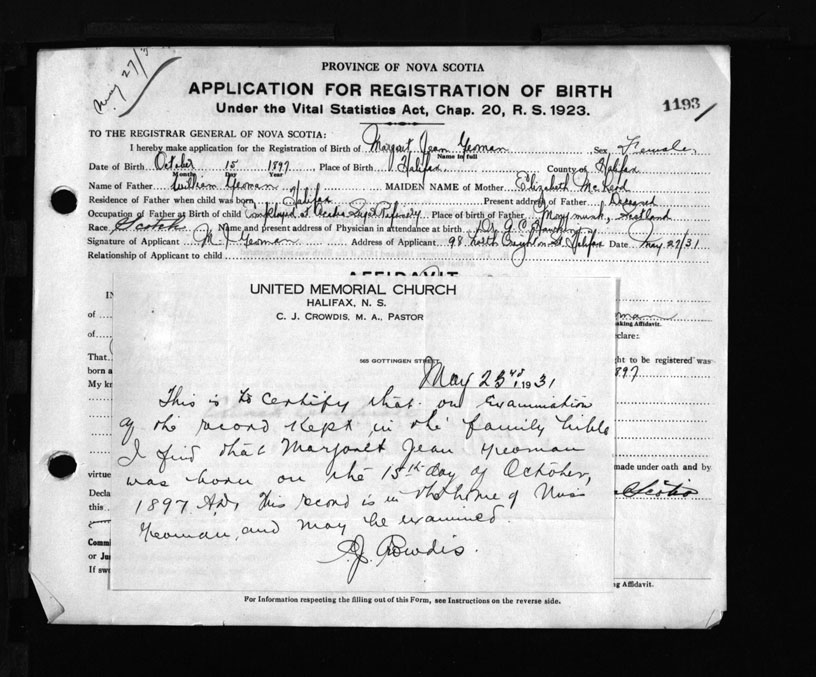 May 27/3
PROVINCE OF NOVA SCOTIA
APPLICATION FOR REGISTRATION OF BIRTH
1193
Under the Vital Statistics Act, Chap. 20, R. S. 1923.
TO THE REGISTRAR GENERAL OF NOVA SCOTIA:
I hereby make application for the Registration of Birth of Margaret Jean Yeoman Sex Female
Name in full
Date of Birth October 15 1897 Place of Birth Halifax County of Halifax
Month Day Year
Name of Father William Yeoman MAIDEN NAME of Mother Elizabeth McLeod
Residence of Father when child was born Halifax Present address of Father Deceased
Occupation of Father at Birth of child Employed at Acadia Sugar Refinery Place of Birth of Father Scotland
Race Scotch Name and present address of Physician in attendance at birth Dr. A. C.
Signature of Applicant M J Yeoman Address of Applicant 98 North Creighton St. Halifax Date May 27/31
Relationship of Applicant to child
AFFIDAVIT
UNITED MEMORIAL CHURCH
HALIFAX, N. S.
C. J. CROWDIS, M. A., PASTOR
565 GOTTINGEN STREET
May 23rd, 1931
This is to certify that on examination
of the record kept in the family bible
I find that Margaret Jean Yeoman
was born on the 15th day of October,
1897 A.D. This record is in the home of Miss
Yeoman, and may be examined.
C.J. Crowdis.
IN
of
of
That
born a
My kn
virtue
Decla
this
Comm
or Jus
If swo
oman
aking Affidavit.
clare:
ght to be registered was
897
made under oath and by
Scotia
g Affidavit.
For Information respecting the filling out of this Form, see Instructions on the reverse side.